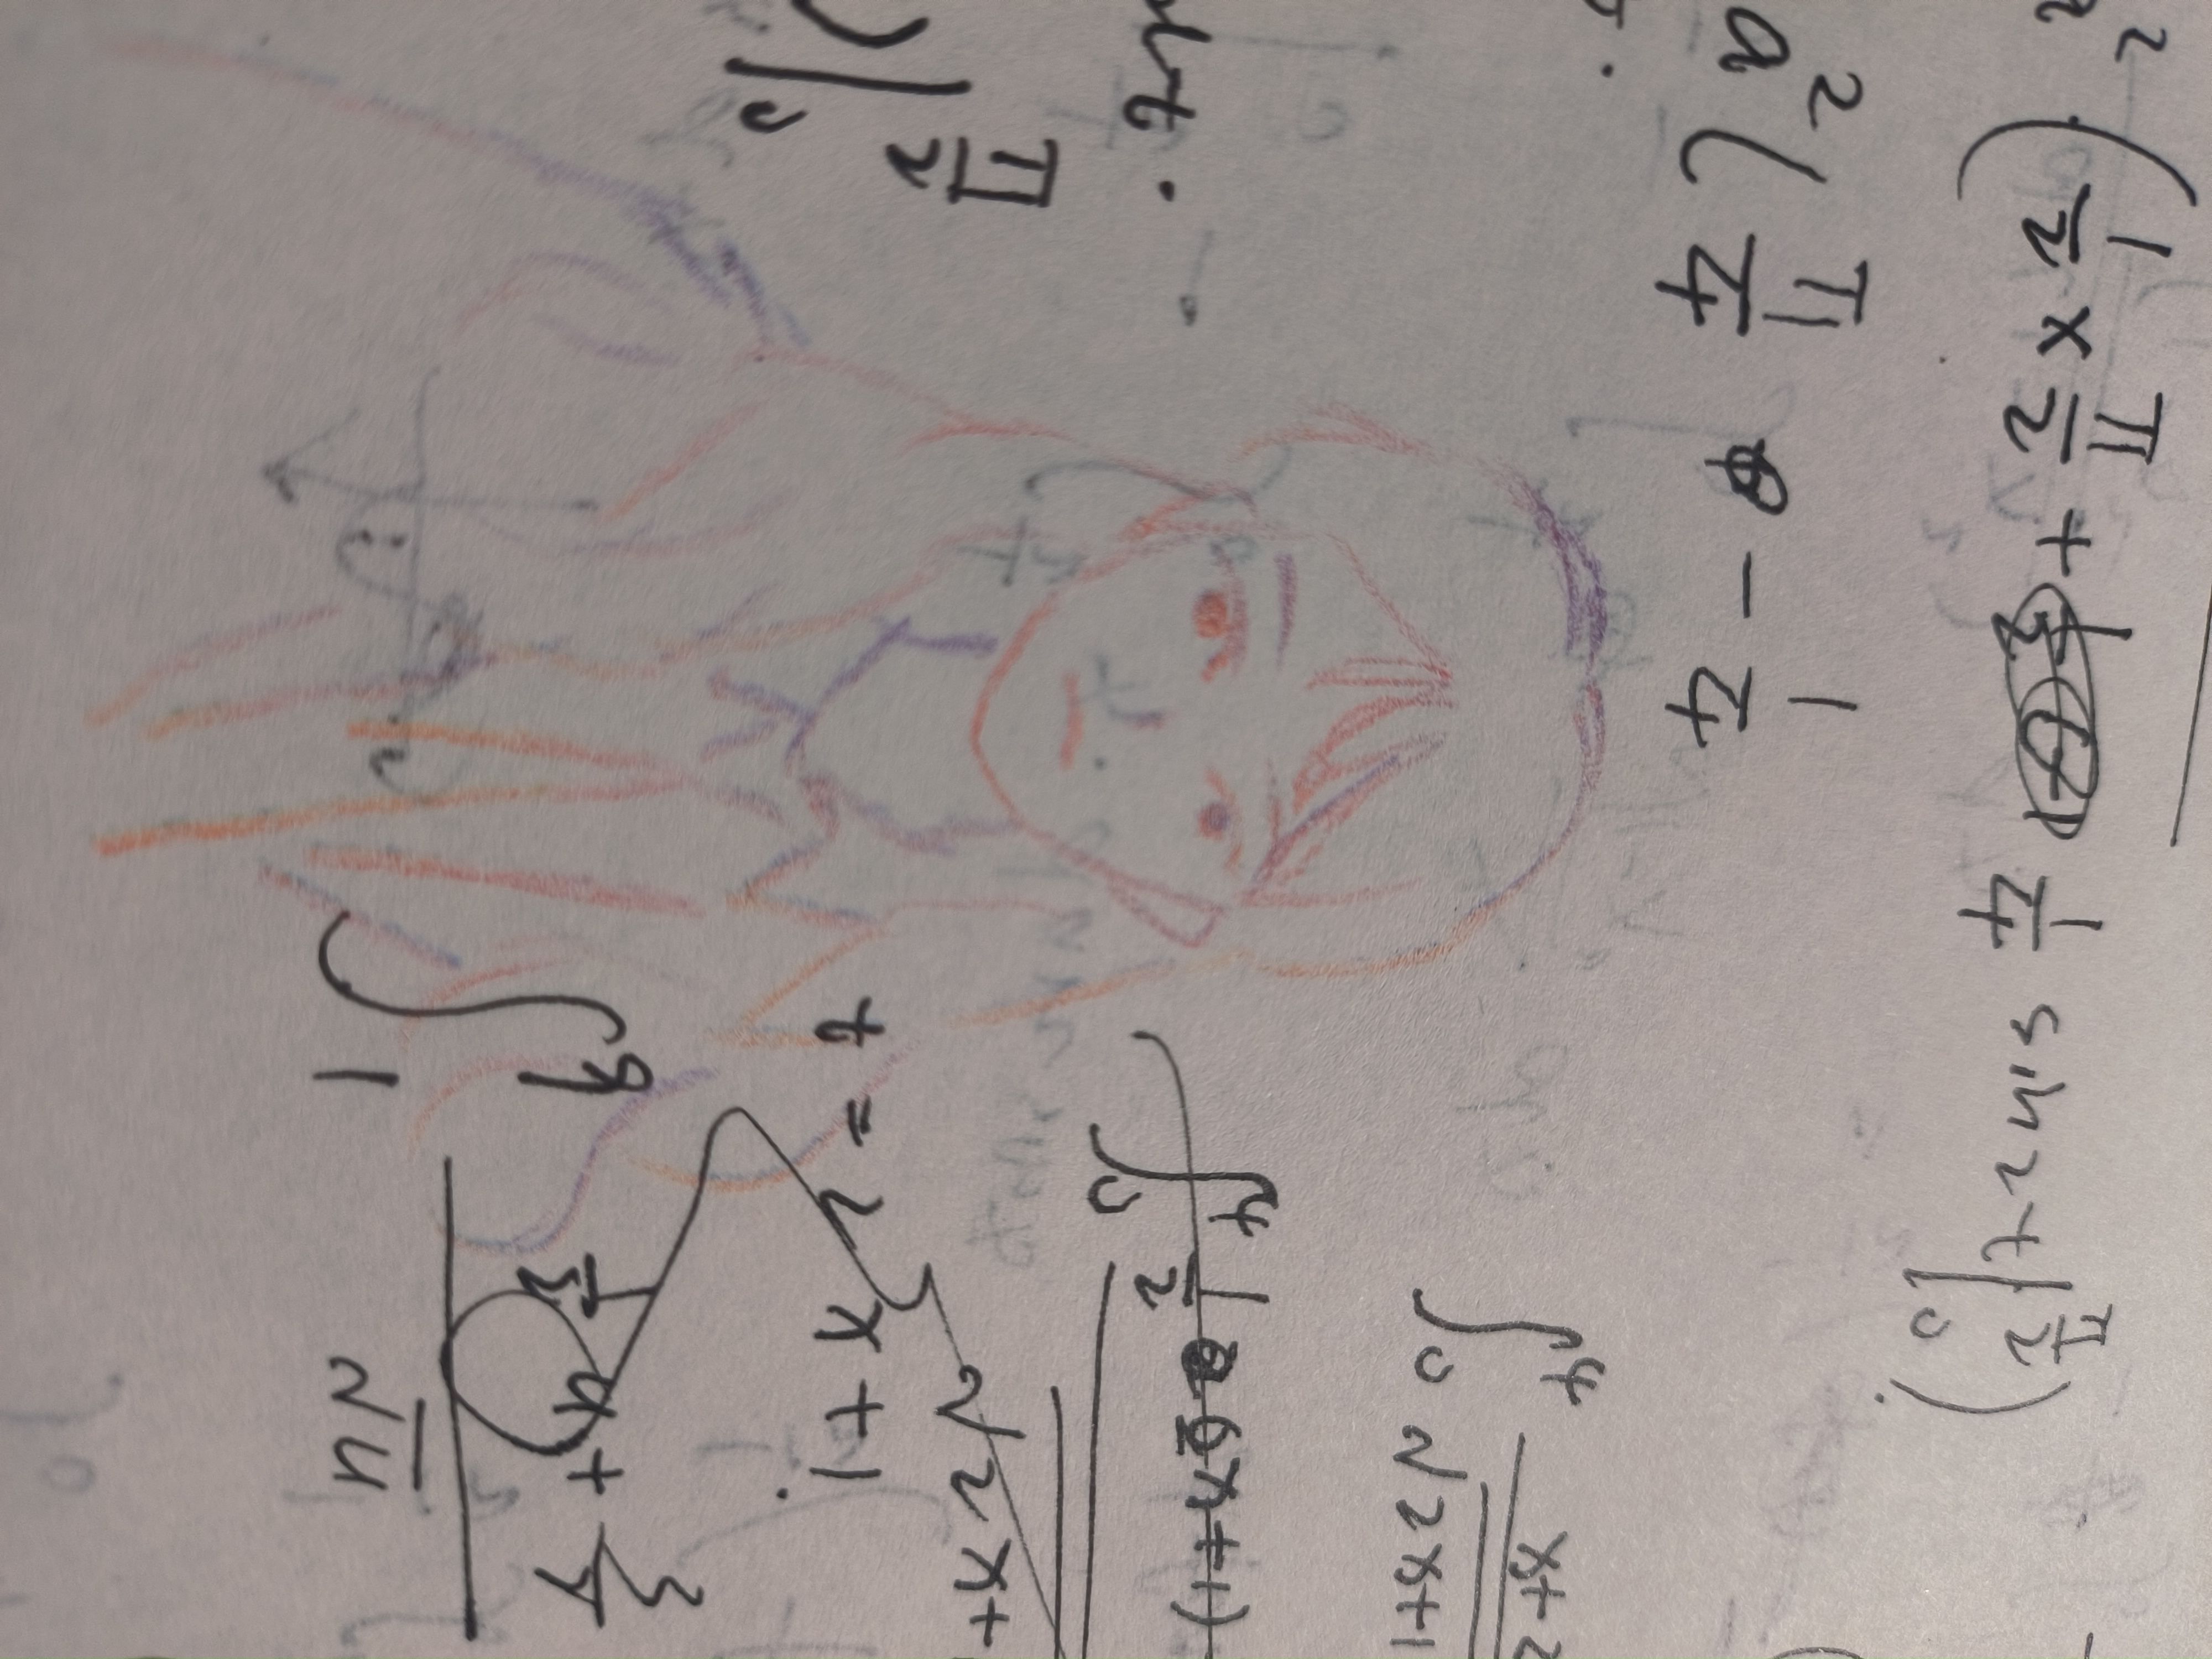 a² (1/2 × π/2 + 1/4 sin2t|₀^(π/2))
a² (π/4 - 1/4
∫₀⁴ x+2/√2x+1
∫₀⁴ 1/2 (2x+1)
dt.
√2x+
)|₀^(π/2)
t = 2x+1.
∫₁⁹ 1/2 u + 3/2 / √u